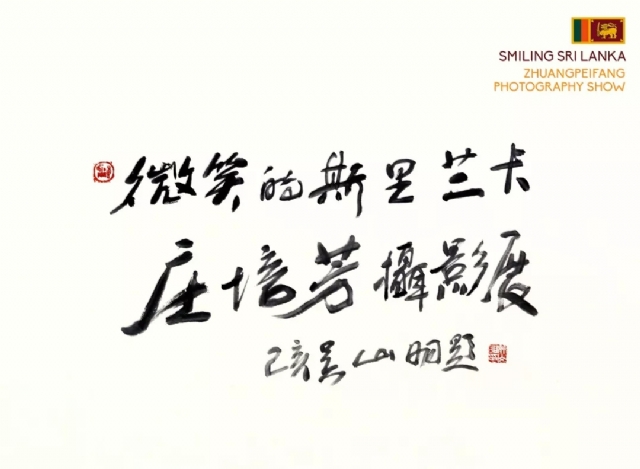 SMILING SRI LANKA
ZHUANGPEIFANG
PHOTOGRAPHY SHOW
微笑的斯里兰卡
庄培芳攝影展
己亥吴山明题